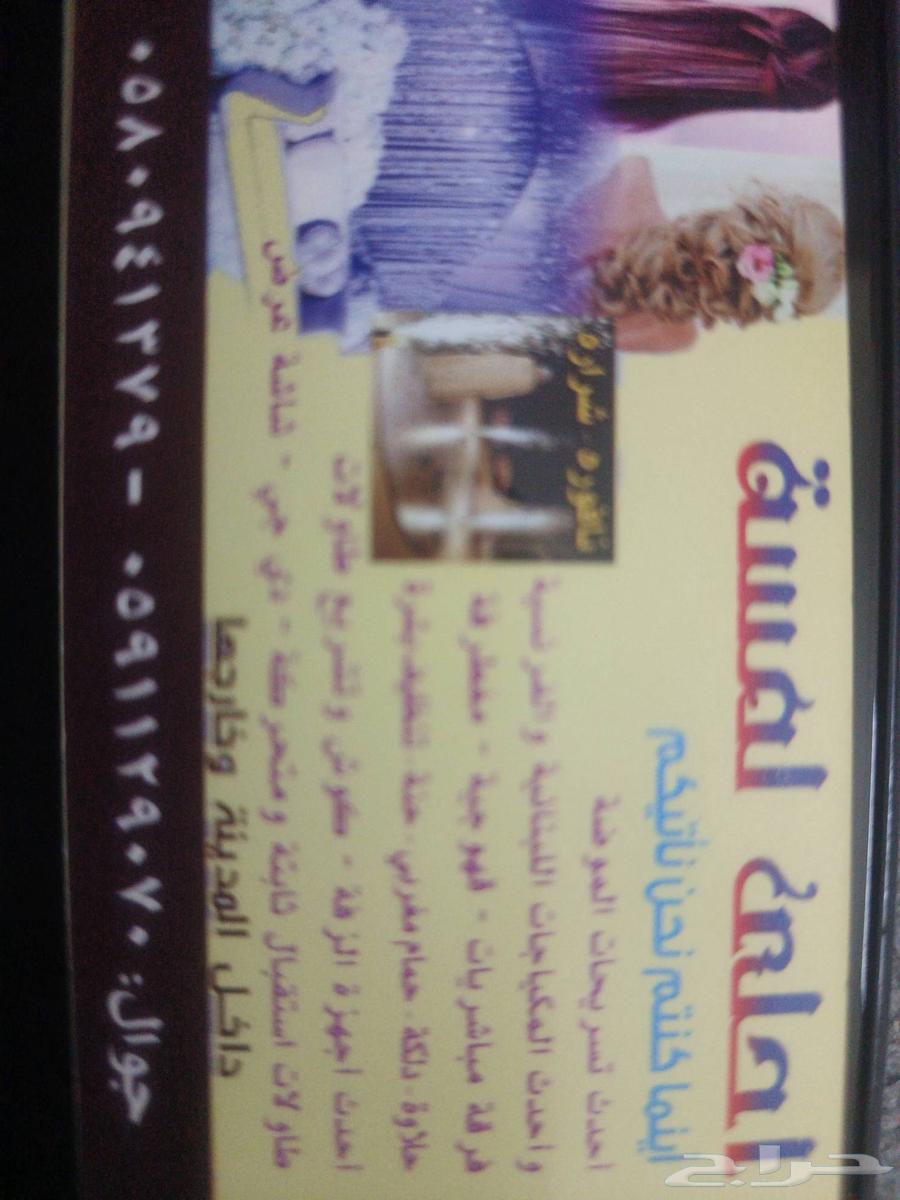 اماني اهسنة
اينما كنتم نحن نأتيكم
احدث تسريحات الموضة
واحدث المكياجات اللبنانية والفرنسية
فرقة مباشريات - قهوجية - مغطرفة
حلاوة - دلكة - حمام مغربي - حنة - تنظيف بشرة
احدث اجهزة الزفة - كوش وتشريع طاولات
طاولات استقبال ثابتة ومتحركة - دي جي - شاشة عرض
داخل المدينة وخارجها
نافورة - شرارة
جوال: ٠٥٩١١٢٩٠٧٠ - ٠٥٨٠٩٤١٢٧٩
حراج